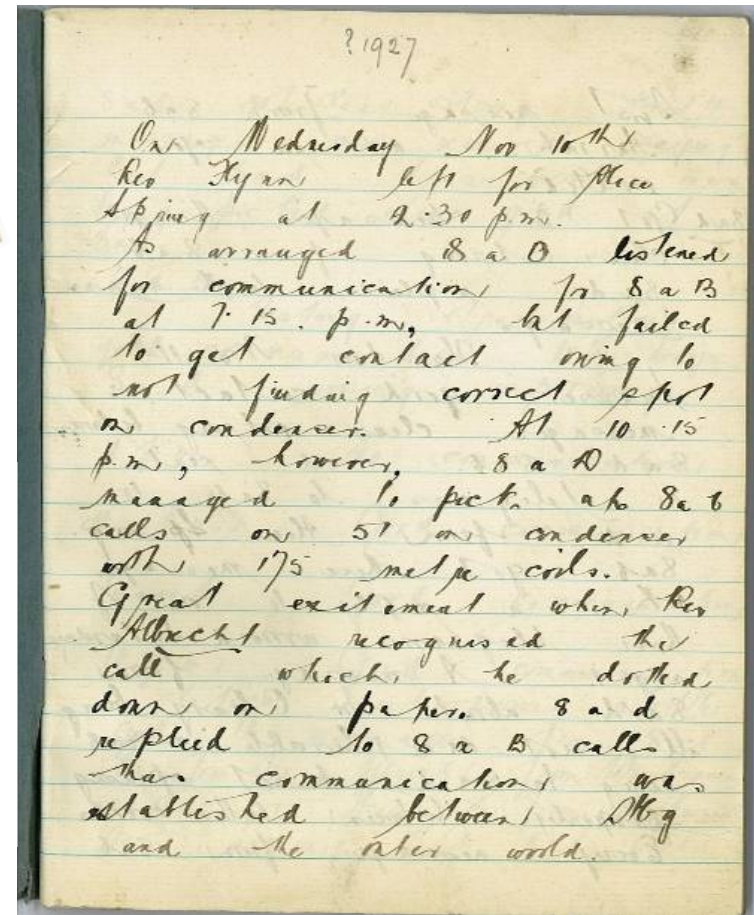 ? 1927
On Wednesday Nov 10th
Rev Flynn left for Alice
Spring at 2.30 p.m.
As arranged 8 a D listened
for communication fr 8 a B
at 7.15. p.m, but failed
to get contact owing to
not finding correct spot
on condenser. At 10.15
p.m, however, 8 a D
managed to pick up 8 a b
calls on 51 on condenser
with 175 metre coils.
Great exitement when Rev
Albrecht recognised the
call which he dotted
down on paper. 8 a d
replied to 8 a B calls
thus communication was
established between Hbg
and the outer world.